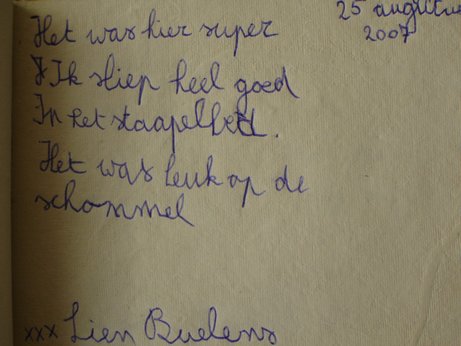 25 augustus
2007
Het was hier super
Ik sliep heel goed
In het staapelbed.
Het was leuk op de
schommel
xxx Lien Buelens